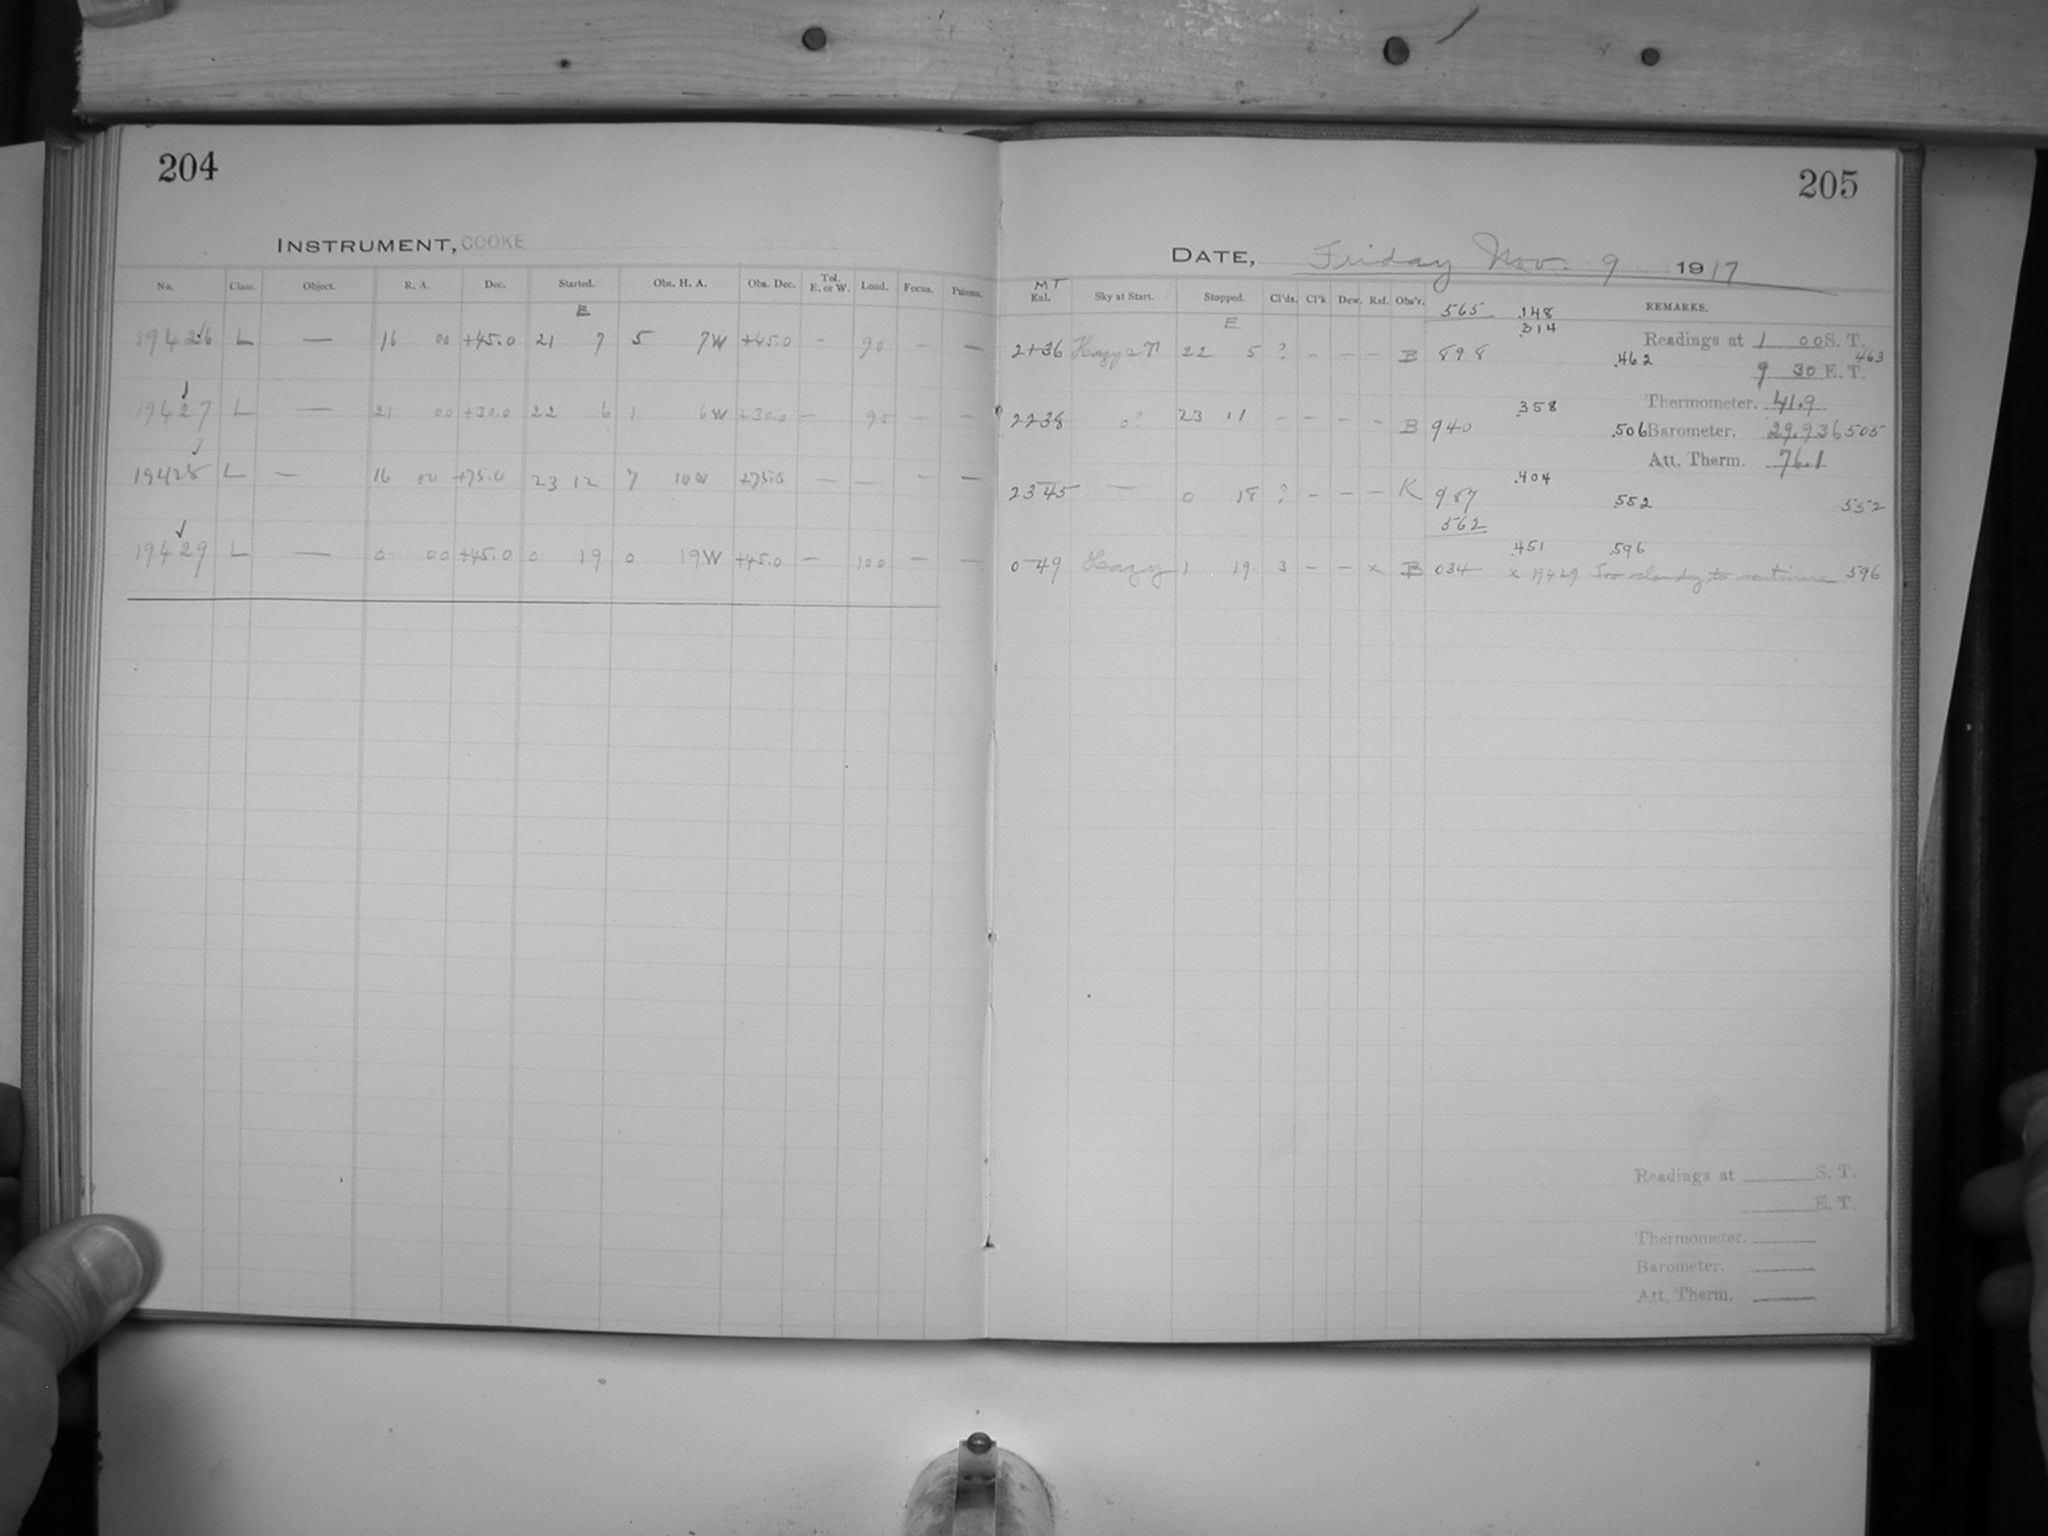 204
INSTRUMENT, COOKE
No. Class. Object. R. A. Dec. Started. Obs. H. A. Obs. Dec. Tel. E. or W. Load. Focus. Prisms.
E
19426 L — 16 00 +45.0 21 7 5 7W +45.0 - 90 - —
19427 L — 21 00 +30.0 22 6 1 6W +30.0 — 95 - —
19428 L — 16 00 +75.0 23 12 7 10W +75.0 — — - —
19429 L — 0 00 +45.0 0 19 0 19W +45.0 — 100 — —
205
DATE, Friday Nov. 9 1917
MT
Enl. Sky at Start. Stopped. Cl'ds. Cl'k Dew. Ref. Obs'r. 565 .148 REMARKS.
E .314
21 36 Hazy 22 5 ? - - - B 898 .462 463
Readings at 1 00 S. T.
9 30 E. T.
Thermometer. 41.9
22 38 0? 23 11 - - - - B 940 .358 .506 505
Barometer. 29.936
Att. Therm. 76.1
23 45 — 0 18 ? - - - K 987 .404 .552 552
562
0 49 Hazy 1 19 3 - - x B 034 .451 .596 596
x 19429 Too cloudy to continue
Readings at S. T.
E. T.
Thermometer.
Barometer.
Att. Therm.